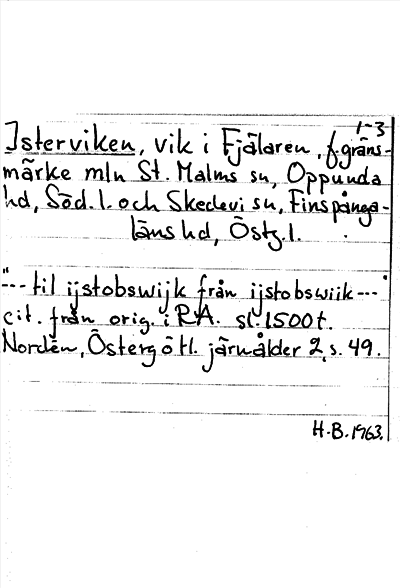 1-3
Isterviken, vik i Fjälaren, f. gräns-
märke mln St. Malms sn, Oppunda
hd, Söd.l. och Skedevi sn, Finspånga-
läns hd, Östg.l.
"--- til ijstobswijk från ijstobswiik ---"
cit. från orig. i RA. sl. 1500t.
Nordén, Östergötl. järnålder 2, s. 49.
H.B. 1963.